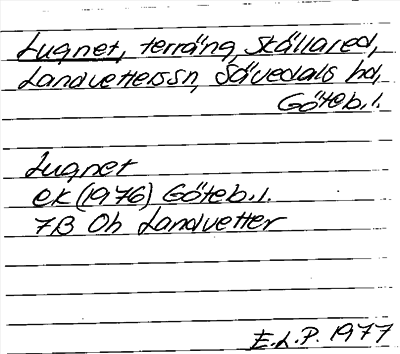 Lugnet, terräng, Ställared,
Landvetterssn, Sävedals hd,
Göteb.l.
Lugnet
ek (1976) Göteb.l.
7B 0h Landvetter
E.L.P. 1977